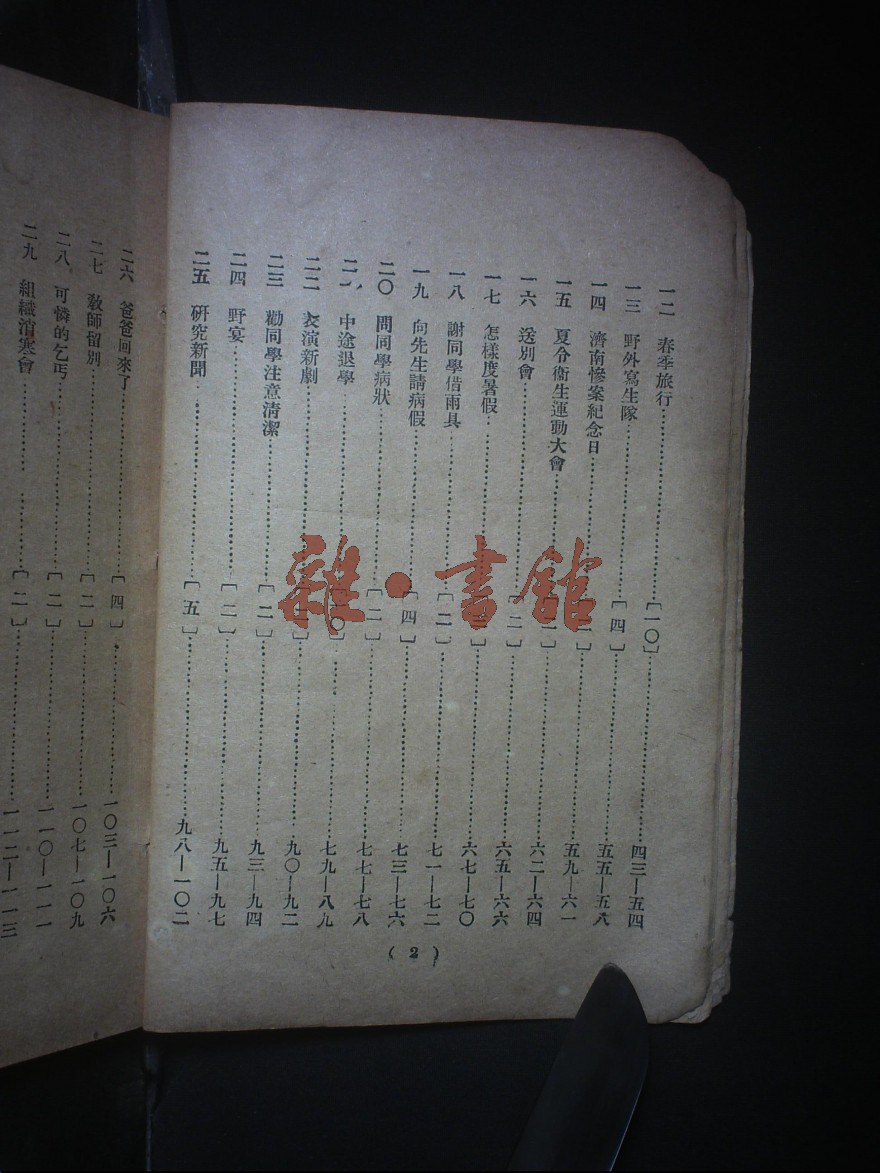 一二 春季旅行……[一〇]……四三—五四
一三 野外寫生隊……[四]……五五—五八
一四 濟南慘案紀念日……[二]……五九—六一
一五 夏令衞生運動大會……[二]……六二—六四
一六 送別會……[二]……六五—六六
一七 怎樣度暑假……六七—七〇
一八 謝同學借雨具……[二]……七一—七二
一九 向先生請病假……[四]……七三—七六
二〇 問同學病狀……[二]……七七—七八
二一 中途退學……[一〇]……七九—八九
二二 表演新劇……九〇—九二
二三 勸同學注意清潔……[二]……九三—九四
二四 野宴……[二]……九五—九七
二五 硏究新聞……[五]……九八—一〇二
(2)
二六 爸爸回來了……[四]……一〇三—一〇六
二七 敎師留別……[二]……一〇七—一〇九
二八 可憐的乞丐……[二]……一一〇—一一一
二九 組織消寒會……[二]……一一二—一一三
雜·書館